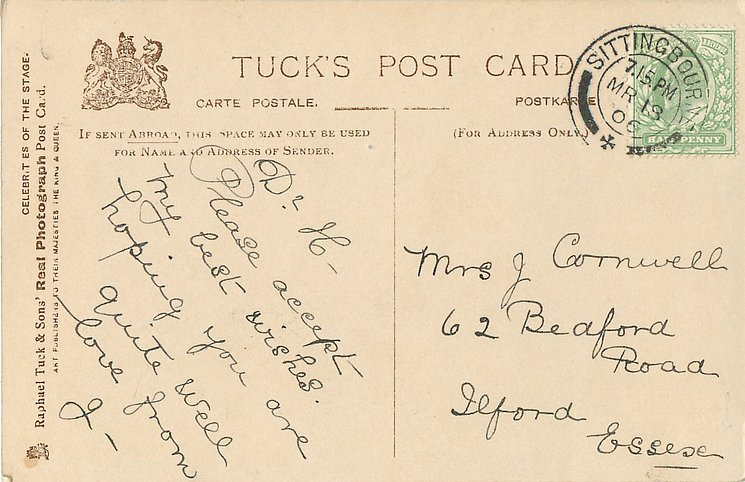 TUCK'S POST CARD
CARTE POSTALE.
POSTKARTE
IF SENT ABROAD, THIS SPACE MAY ONLY BE USED
FOR NAME AND ADDRESS OF SENDER.
(FOR ADDRESS ONLY.)
CELEBRITIES OF THE STAGE.
Raphael Tuck & Sons' Real Photograph Post Card.
ART PUBLISHERS TO THEIR MAJESTIES THE KING & QUEEN.
SITTINGBOURNE
7.15 PM
MR 13
06
HALFPENNY
Dr H-
Please accept
my best wishes.
hoping you are
quite well
love from
J-
Mrs J Cornwell
62 Bedford
Road
Ilford
Essex